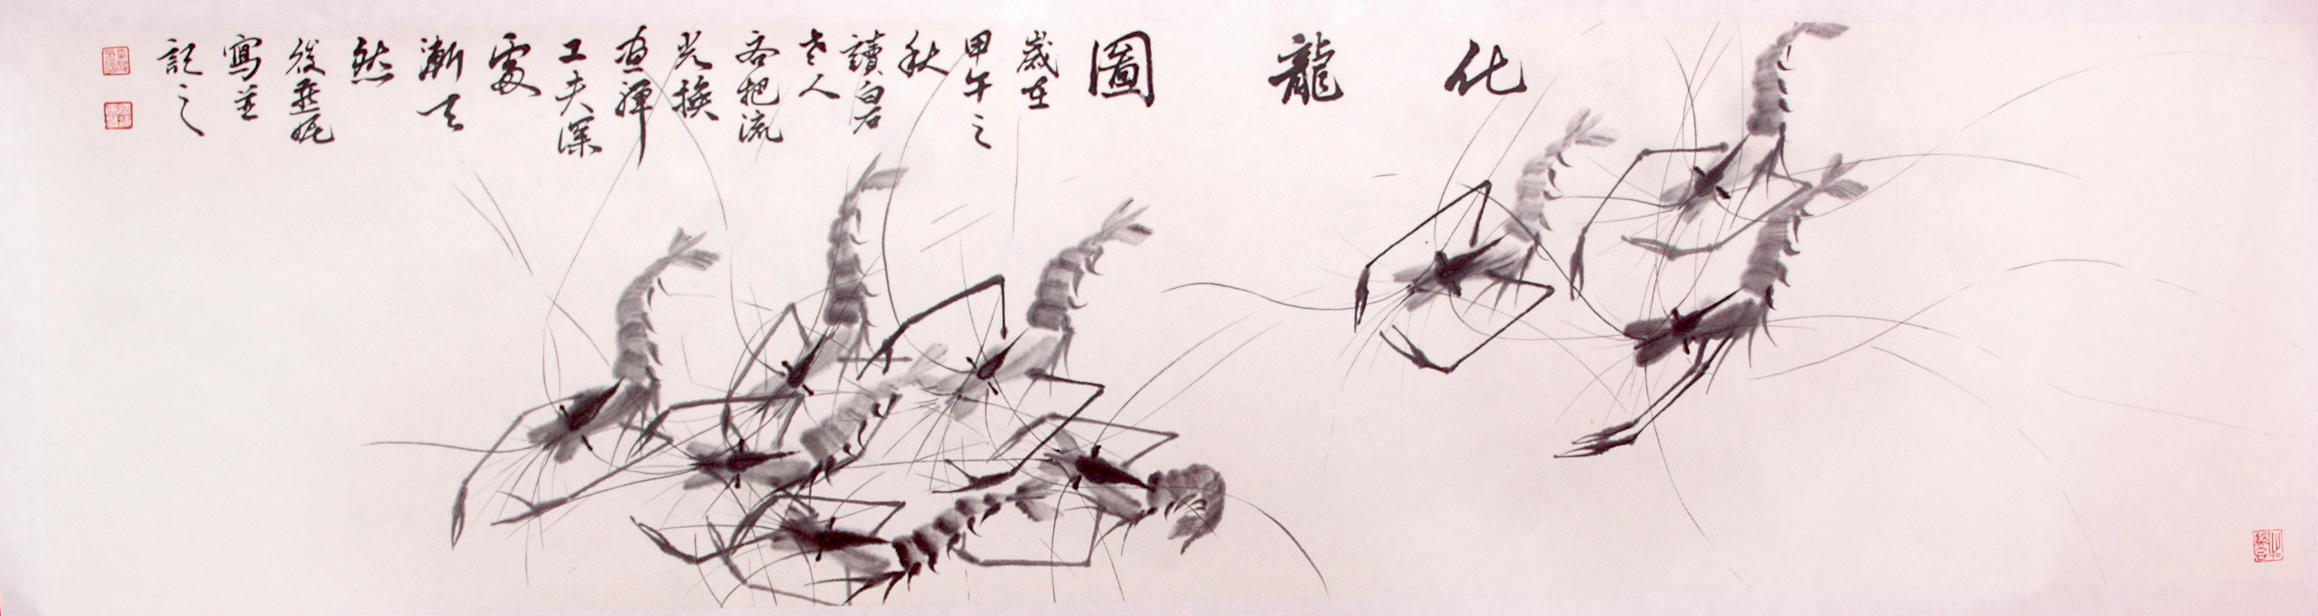 化龍圖
歲在
甲午之
秋
讀白石
老人
畫把流
光換
畫禪
工夫深
處
漸天
然
後
寫並
記之